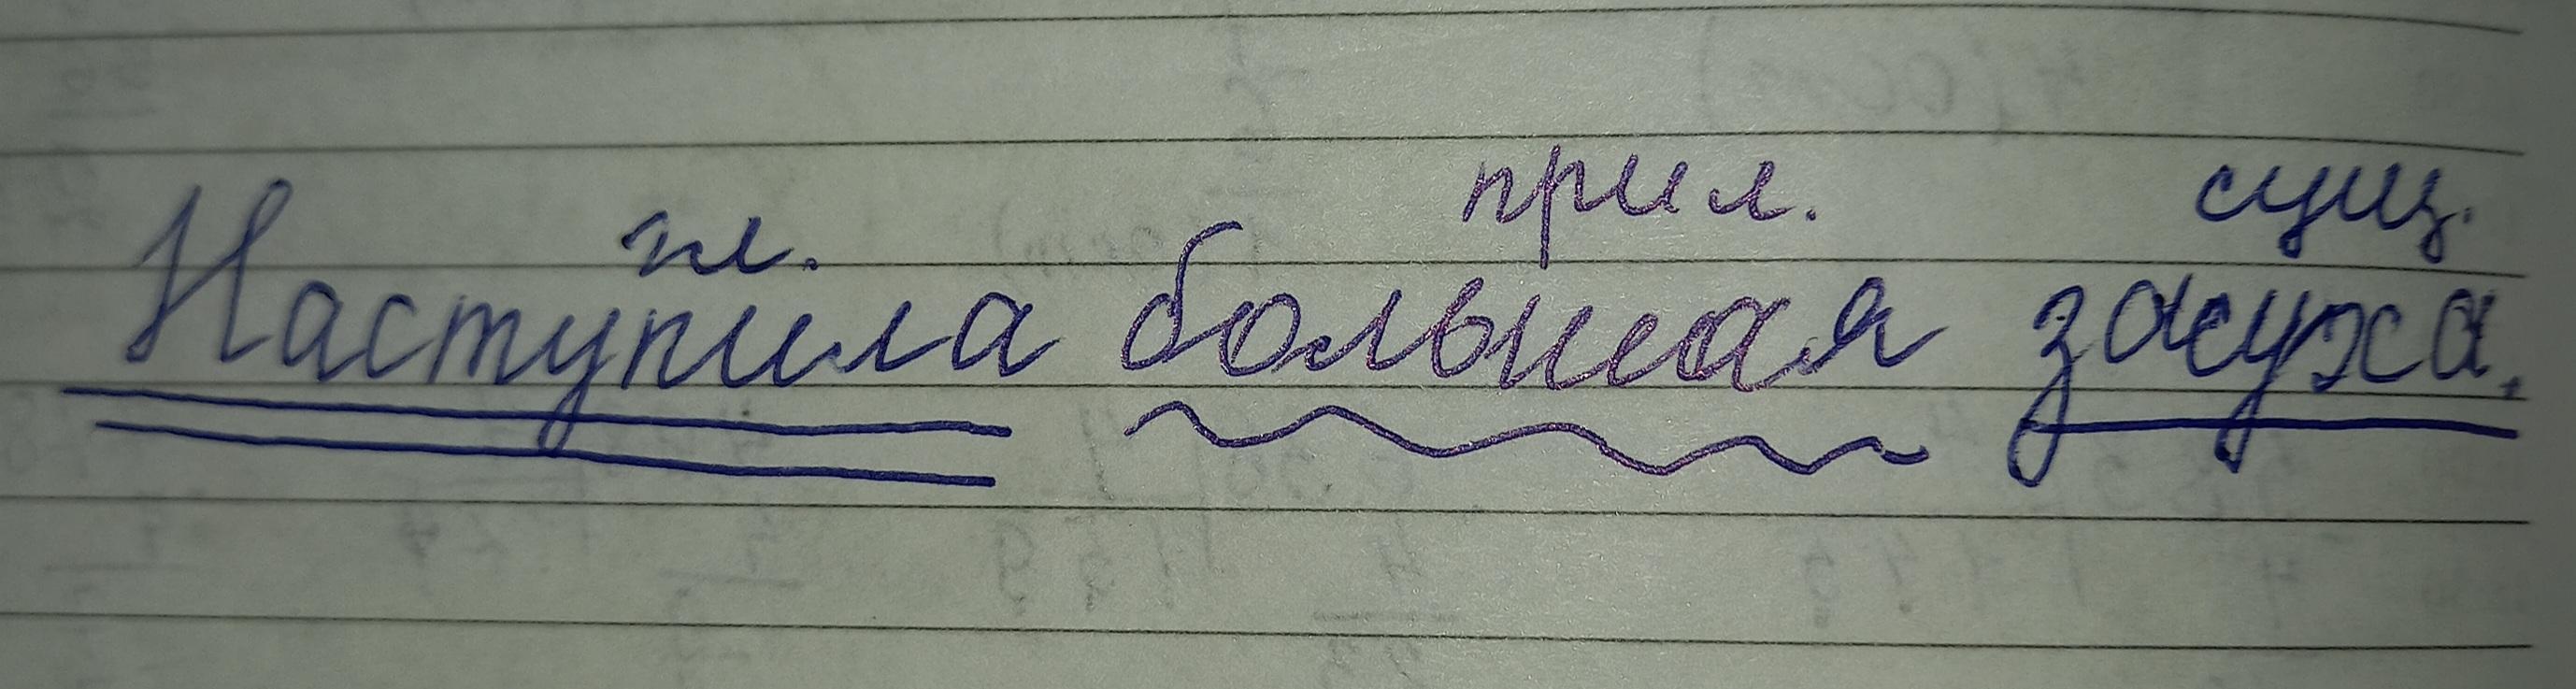 гл. прил. сущ.
Наступила большая засуха.